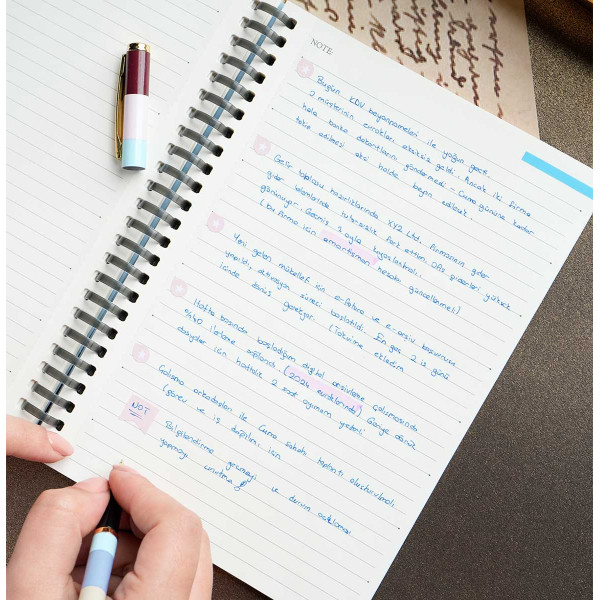 NOTE
Bugün KDV beyannameleri ile yoğun geçti.
2 müşterinin evrakları eksiksiz geldi. Ancak iki firma
hala banka dekontlarını göndermedi - Cuma gününe kadar
takip edilmesi aksi halde beyan edilecek.
Gelir tablosu hazırlıklarında XYZ Ltd. firmasının gider
gider kalemlerinde tutarsızlık fark ettim. Ofis giderleri yüksek
görünüyor. Geçmiş 3 ayla kıyaslanmalı.
(bu firma için amortisman hesabı güncellenmeli)
Yeni gelen mükellef için e-fatura ve e-arşiv başvurusu
yapıldı, aktivasyon süreci başlatıldı. En geç 2 iş günü
içinde dönüş gerekiyor. (Takvime ekledim
Hafta başında başladığım dijital arşivleme çalışmasında
%40 ilerleme sağlandı (2024 evraklarında) Geriye dönük
dosyalar için haftalık 2 saat ayırmam yeterli
Çalışma arkadaşları ile Cuma sabahı toplantı oluşturulmalı
(görev ve iş dağılımı için
NOT
Bilgilendirme geçmeyi ve durum açıklaması
yapmayı unutma